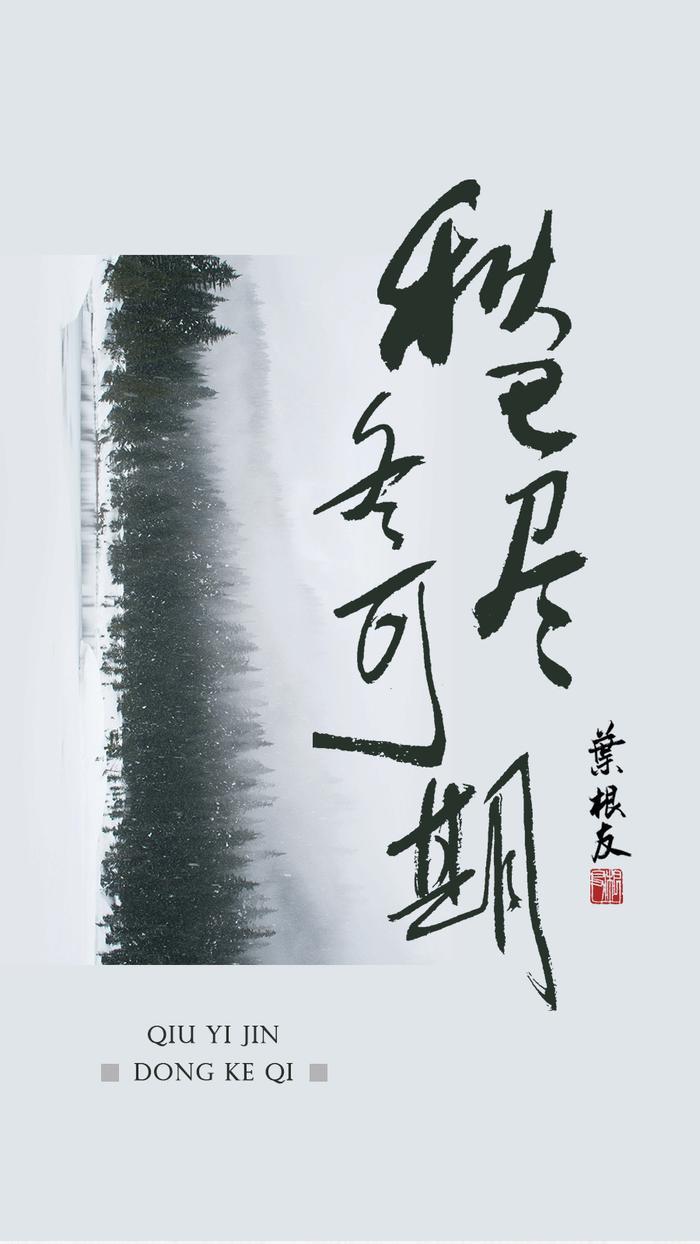 秋已尽
冬可期
葉根友
QIU YI JIN
DONG KE QI